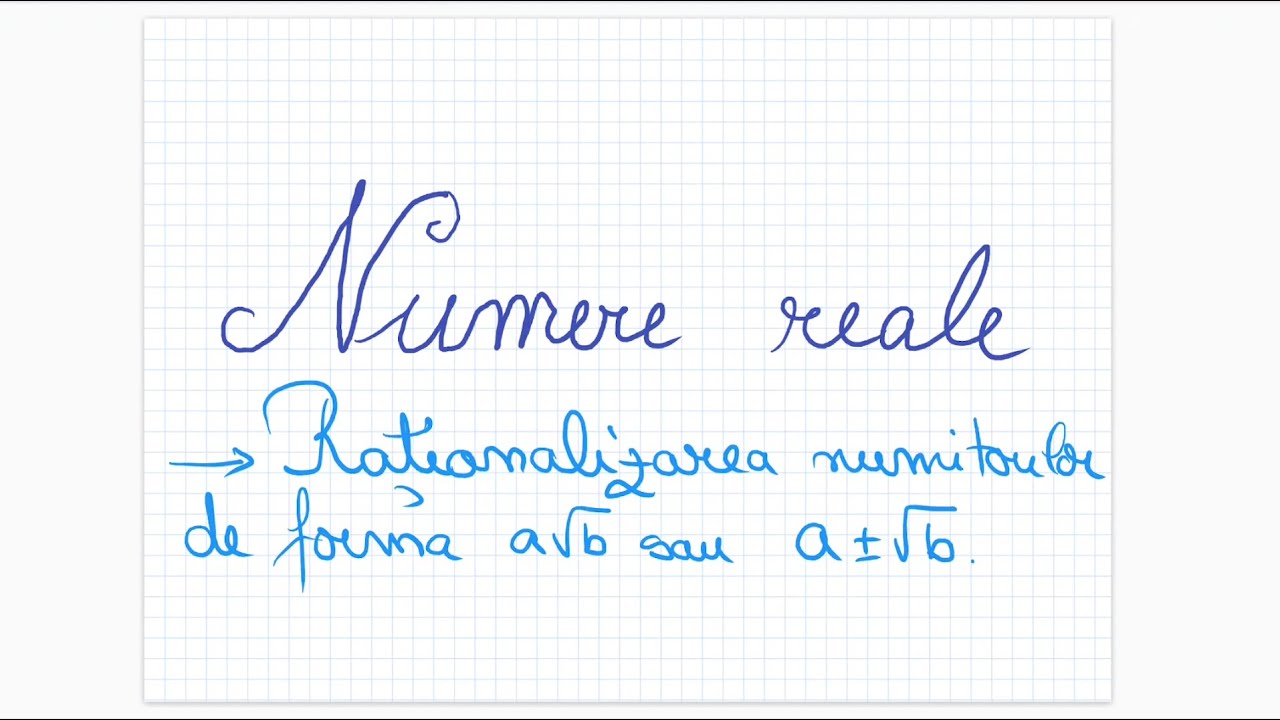 Numere reale
→ Raționalizarea numitorilor
de forma a√b sau a ± √b.